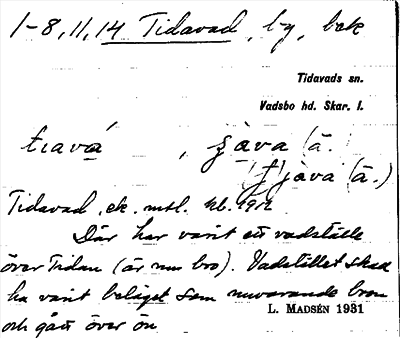 1-8, 11, 14 Tidavad, by, bek
Tidavads sn.
Vadsbo hd. Skar. l.
tıavá , java (ā.
(f)java (ā.)
Tidavad, ek. mtl. kb. 1912
Där har varit ett vadställe
över Tidan (är nu bro). Vadstället skall
ha varit beläget som nuvarande bron
och gått över ön
L. MADSÉN 1931